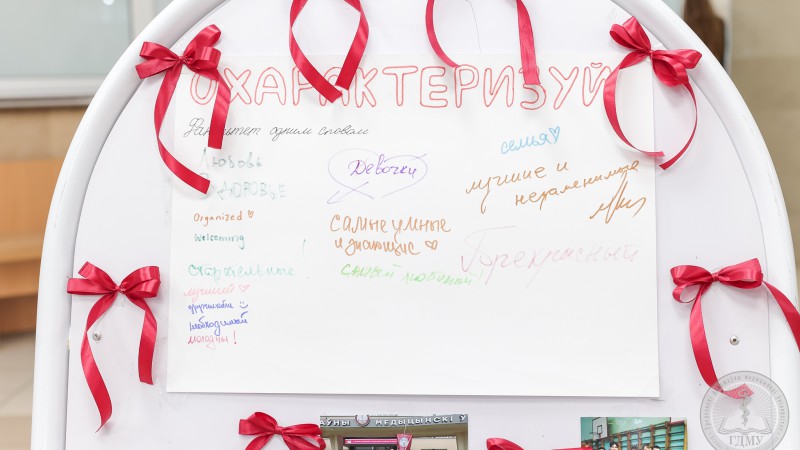 ОХАРАКТЕРИЗУЙ
Факультет одним словом
Любовь
Здоровье
Organized
Welcoming
старательные!
лучший
дружелюбн
необходимый
молодцы!
Девочки
самые умные
и знающие
самый любимый!
семья
лучшие и
незаменимые
Прекрасный
МЕДЫЦЫНСКІ Ў
ГДМУ